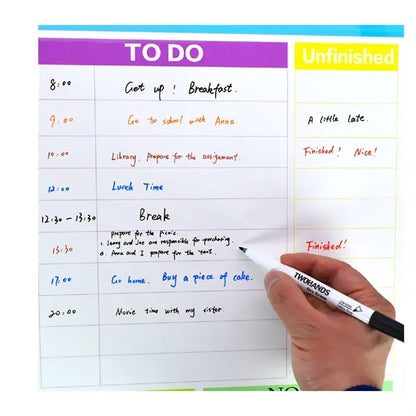 TO DO
Unfinished
8:00 Get up! Breakfast.
9:00 Go to school with Anna. A little late.
10:00 Library. Prepare for the assignment. Finished! Nice!
12:00 Lunch Time
12:30 - 13:30 Break
13:30 Prepare for the picnic. Finished!
1. Lenny and Joe are responsible for purchasing.
2. Anna and I prepare for the tent.
17:00 Go home. Buy a piece of cake.
20:00 Movie time with my sister.
TWOHANDS
NO